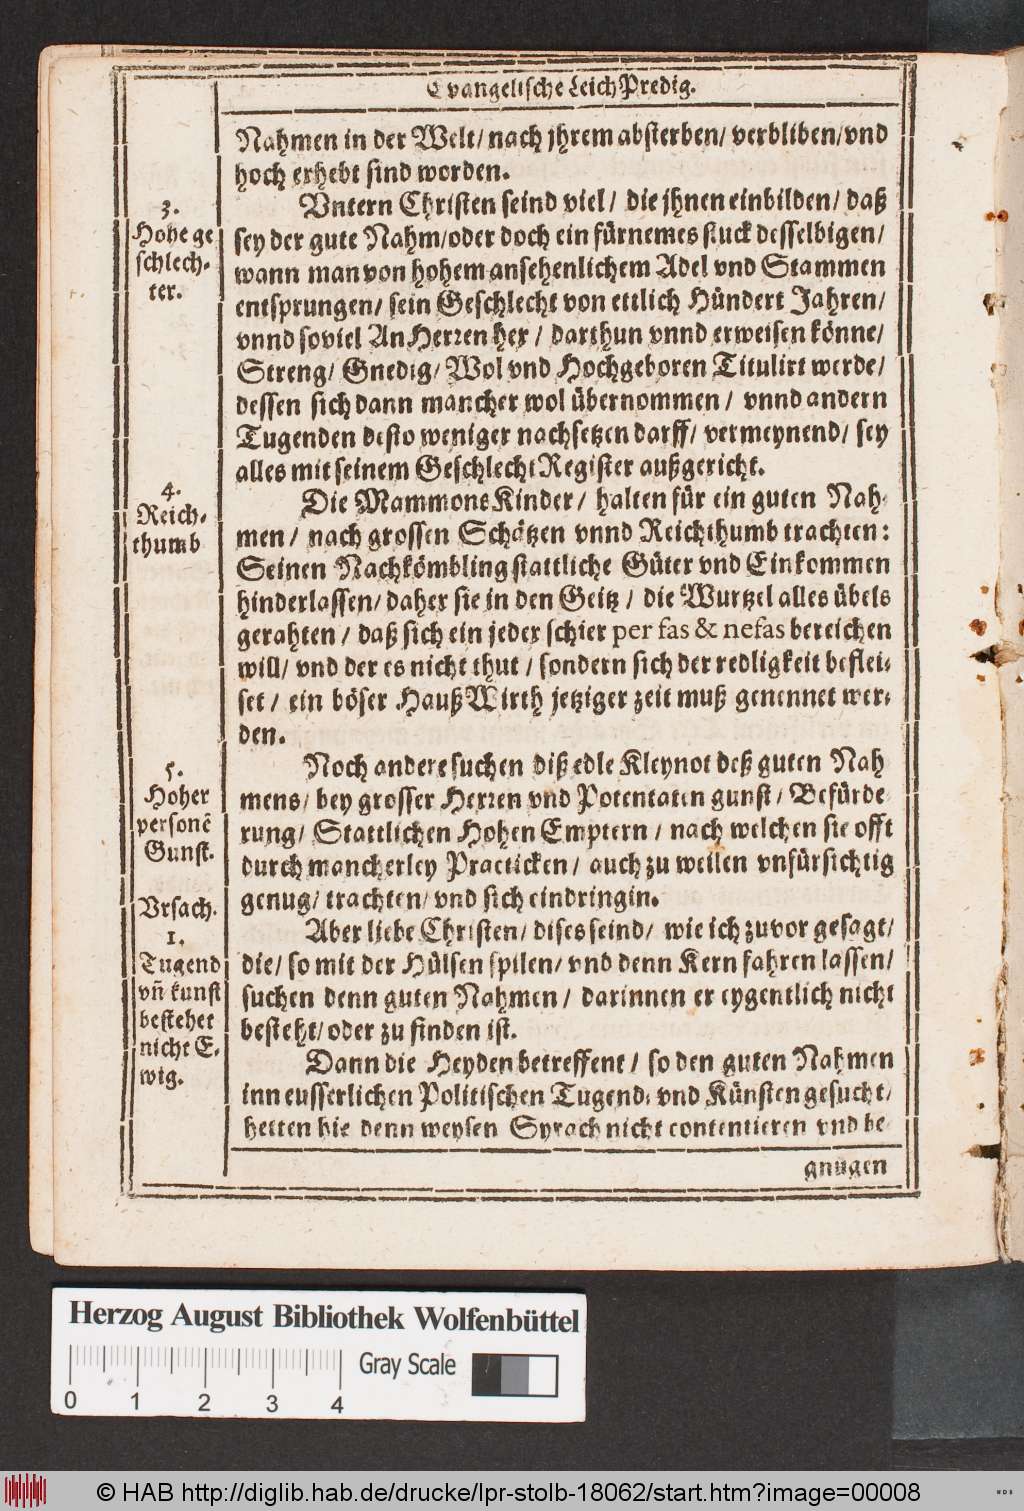 Evangelische LeichPredig.
Nahmen in der Welt/ nach jhrem absterben/ verbliben/vnd
hoch erhebt sind worden.
3.
Hohe ge
schlech-
ter.
Vntern Christen seind viel/ die jhnen einbilden/ daß
sey der gute Nahm/oder doch ein fürnemes stuck desselbigen/
wann man von hohem ansehenlichem Adel vnd Stammen
entsprungen/ sein Geschlecht von ettlich Hundert Jahren/
vnnd soviel AnHerren her/ darthun vnnd erweisen könne/
Streng/ Gnedig/ Wol vnd Hochgeboren Titulirt werde/
dessen sich dann mancher wol übernommen/ vnnd andern
Tugenden desto weniger nachsetzen darff/ vermeynend/ sey
alles mit seinem Geschlecht Register außgericht.
4.
Reich-
thumb
Die MammonsKinder/ halten für ein guten Nah-
men/ nach grossen Schätzen vnnd Reichthumb trachten:
Seinen Nachkömbling stattliche Güter vnd Einkommen
hinderlassen/ daher sie in den Geitz/ die Wurtzel alles übels
gerahten/ daß sich ein jeder schier per fas & nefas bereichen
will/ vnd der es nicht thut/ sondern sich der redligkeit beflei-
set/ ein böser HaußWirth jetziger zeit muß genennet wer-
den.
5.
Hoher
personē
Gunst.
Noch andere suchen diß edle Kleynot deß guten Nah
mens/ bey grosser Herren vnd Potentaten gunst/ Befürde
rung/ Stattlichen Hohen Emptern/ nach welchen sie offt
durch mancherley Practicken/ auch zu weilen vnfürsichtig
genug/ trachten/ vnd sich eindringin.
Vrsach.
1.
Tugend
vñ kunst
bestehet
nicht E-
wig.
Aber liebe Christen/ dises seind/ wie ich zuvor gesagt/
die/ so mit der Hülsen spilen/ vnd denn Kern fahren lassen/
suchen denn guten Nahmen/ darinnen er eygentlich nicht
besteht/ oder zu finden ist.
Dann die Heyden betreffent/ so den guten Nahmen
inn eusserlichen Politischen Tugend- vnd Künsten gesucht/
hetten hie denn weysen Syrach nicht contentieren vnd be-
gnügen
Herzog August Bibliothek Wolfenbüttel
Gray Scale
0 1 2 3 4
© HAB http://diglib.hab.de/drucke/lpr-stolb-18062/start.htm?image=00008